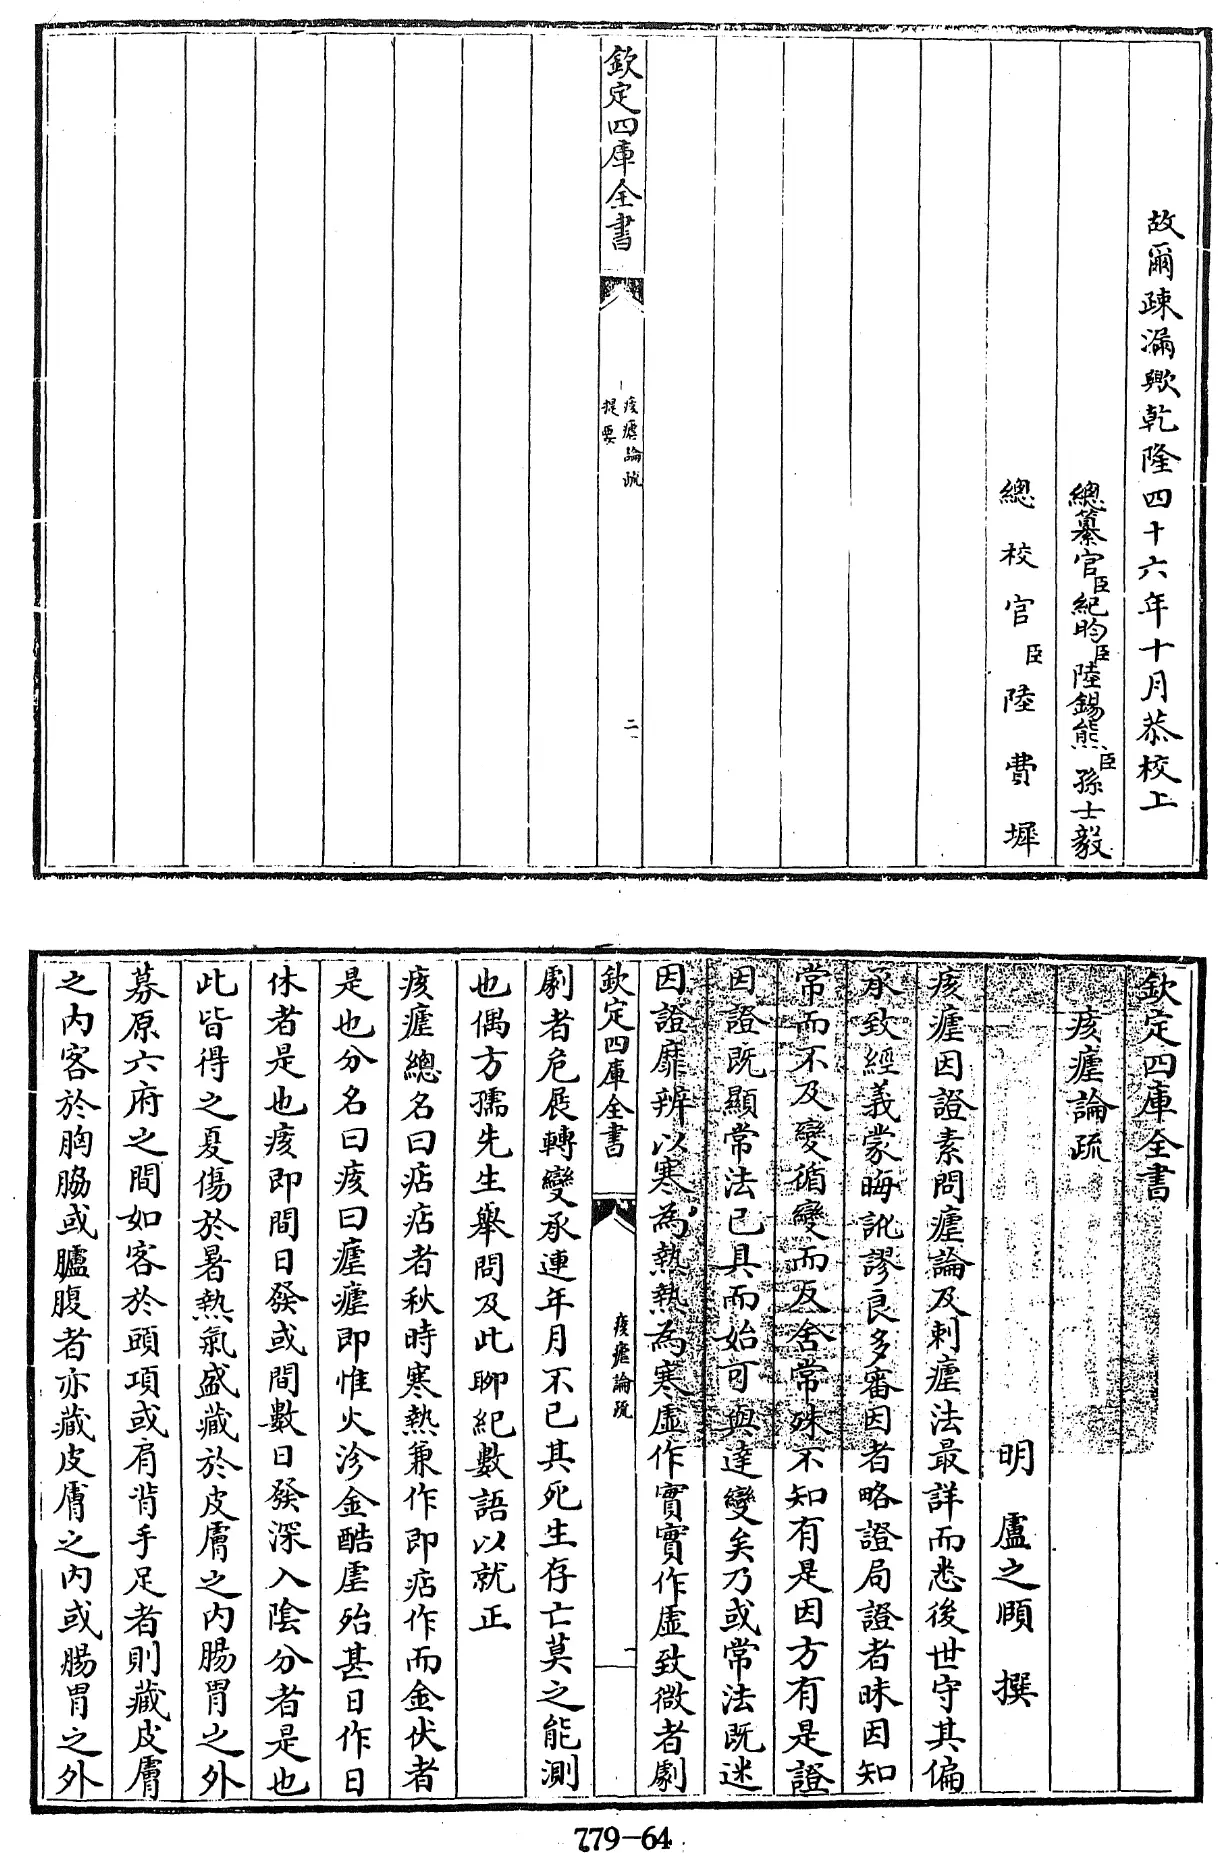 故爾疎漏歟乾隆四十六年十月恭校上
總纂官臣紀昀臣陸錫熊臣孫士毅
總校官臣陸費墀
欽定四庫全書
痎瘧論疏
提要
二
欽定四庫全書
痎瘧論疏
明盧之頤撰
痎瘧因證素問瘧論及刺瘧法最詳而悉後世守其偏
承致經義蒙晦訛謬良多審因者略證局證者昧因知
常而不及變循變而反舍常殊不知有是因方有是證
因證既顯常法已具而始可與達變矣乃或常法既迷
因證靡辨以寒為熱熱為寒虛作實實作虛致微者劇
欽定四庫全書
痎瘧論疏
一
劇者危展轉變承連年月不已其死生存亡莫之能測
也偶方孺先生舉問及此聊紀數語以就正
痎瘧總名曰痁痁者秋時寒熱兼作即痁作而金伏者
是也分名曰痎曰瘧瘧即惟火沴金酷虐殆甚日作日
休者是也痎即間日發或間數日發深入陰分者是也
此皆得之夏傷於暑熱氣盛藏於皮膚之內腸胃之外
募原六府之間如客於頭項或肩背手足者則藏皮膚
之內客於胸脇或臚腹者亦藏皮膚之內或腸胃之外
779-64